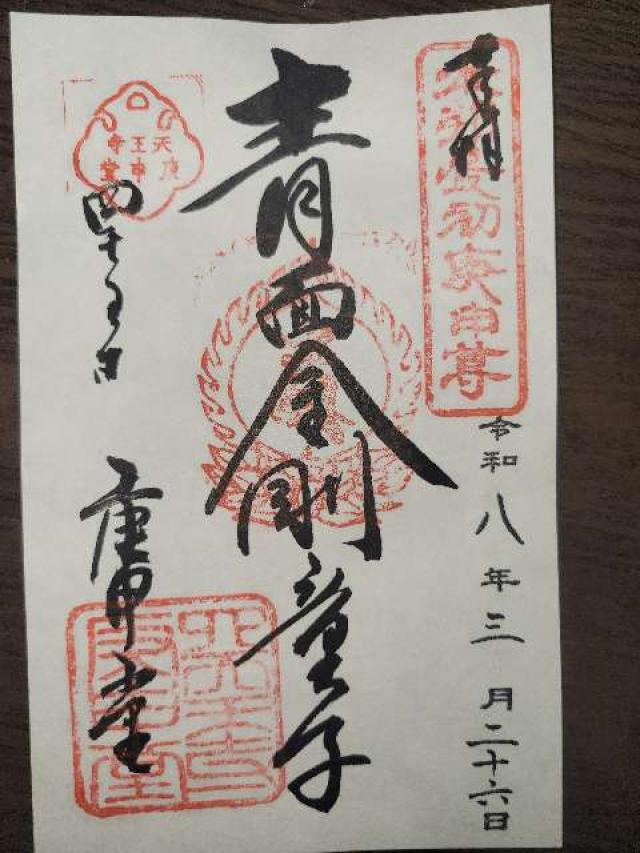 奉拝
最初庚申尊
令和八年三月二十六日
青面金剛童子
天王寺
庚申堂
四天王寺
庚申堂